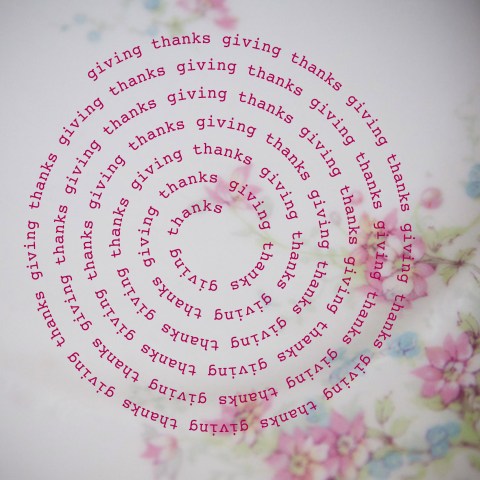 giving thanks giving thanks giving thanks giving thanks giving thanks giving thanks giving thanks giving thanks giving thanks giving thanks giving thanks giving thanks giving thanks giving thanks giving thanks giving thanks giving thanks giving thanks giving thanks giving thanks giving thanks giving thanks giving thanks giving thanks giving thanks giving thanks giving thanks giving thanks giving thanks